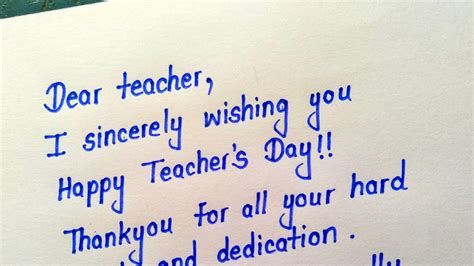 Dear teacher,
I sincerely wishing you
Happy Teacher's Day!!
Thankyou for all your hard
and dedication.